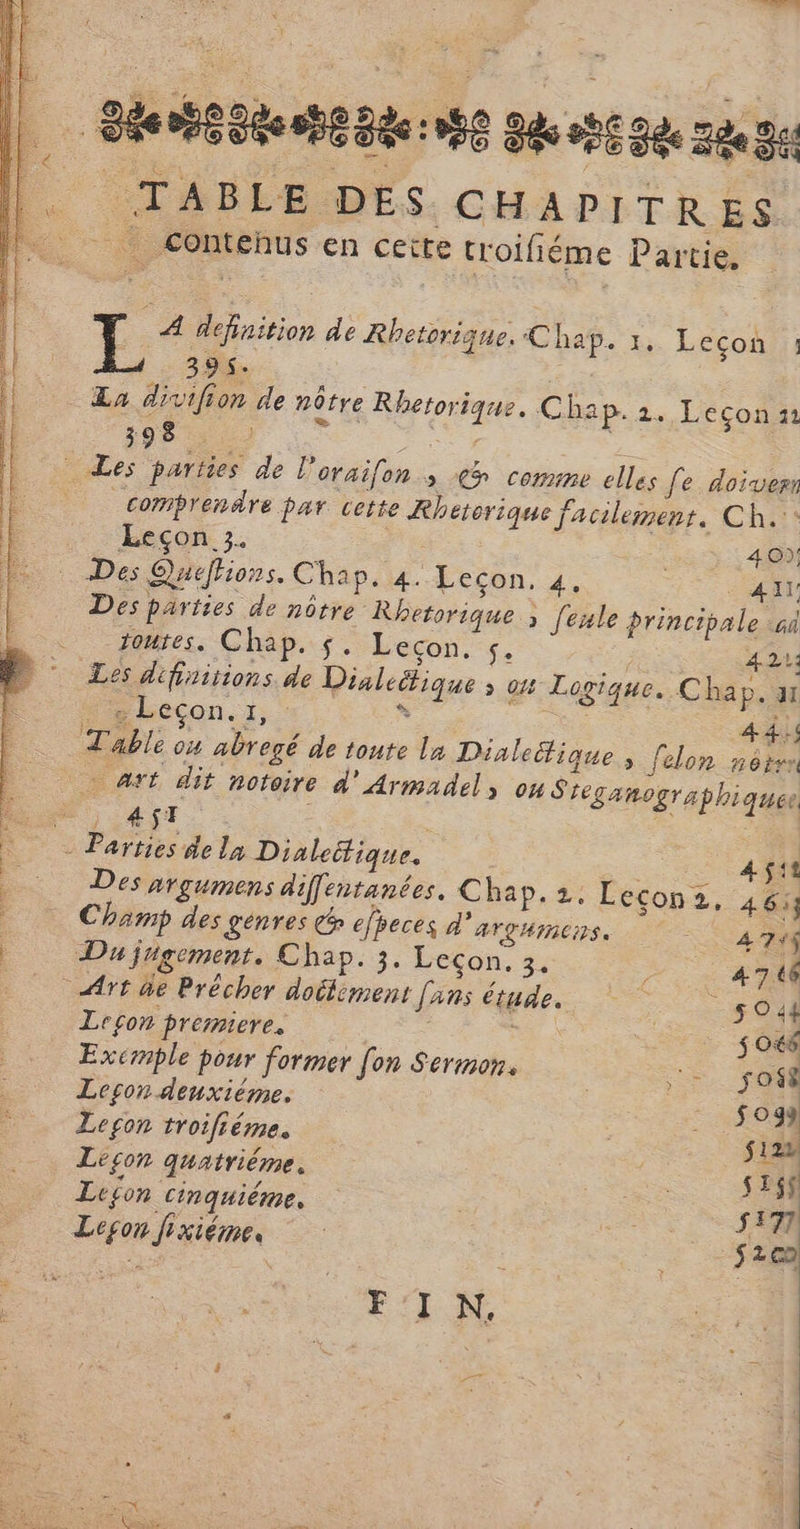 TABLE DES CHAPITRES
contenus en cette troiſiéme Partie.
LA definition de Rhetorique. Chap. 1. Leçon 1
395.
La diviſion de nôtre Rhetorique. Chap. 2. Leçon 2
398
Les parties de l'oraiſon, & comme elles ſe doivent
comprendre par cette Rhetorique facilement. Ch.
Leçon 3. 409
Des Queſtions. Chap. 4. Leçon. 4. 411
Des parties de nôtre Rhetorique, ſeule principale ad
toutes. Chap. 5. Leçon. 5. 421
Les définitions de Dialectique, ou Logique. Chap. 1
Leçon. 1, 44
Table ou abregé de toute la Dialectique, ſelon nôtre
art dit notoire d'Armadel, ou Steganographique
451
Parties de la Dialectique. 451
Des argumens diſſentanées. Chap. 2. Leçon 2, 463
Champ des genres & eſpeces d'argumens. 475
Du jugement. Chap. 3. Leçon. 3. 476
Art de Précher doctement ſans étude. 504
Leçon premiere. 506
Exemple pour former ſon Sermon. 508
Leçon deuxiéme. 509
Leçon troiſiéme. 512
Leçon quatriéme. 515
Leçon cinquiéme. 517
Leçon ſixiéme. 520
FIN.